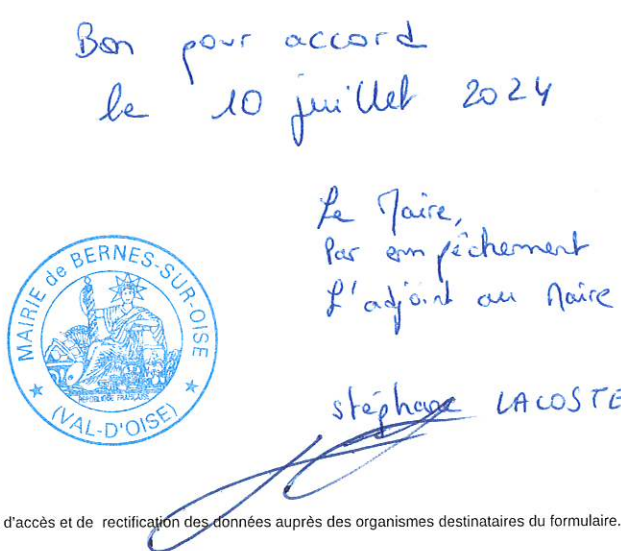 Bon pour accord
le 10 juillet 2024
Le Maire,
Par empêchement
L'adjoint au Maire
MAIRIE de BERNES-SUR-OISE
RÉPUBLIQUE FRANÇAISE
(VAL-D'OISE)
stéphane LACOSTE
d'accès et de rectification des données auprès des organismes destinataires du formulaire.